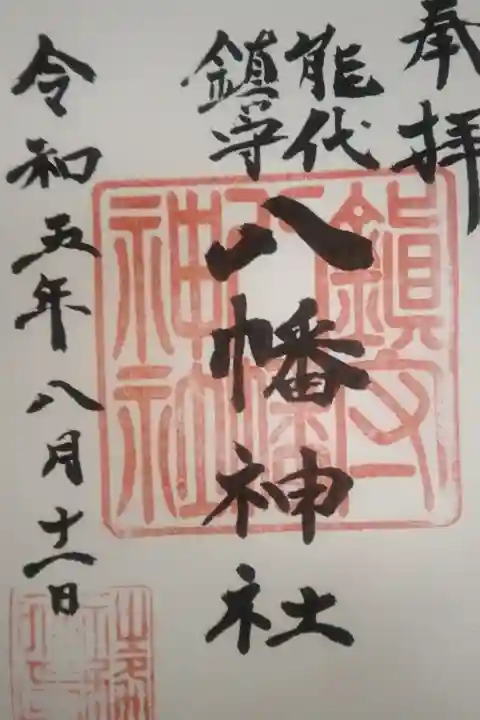 奉拝
能代
鎮守
八幡神社
令和五年八月十一日
鎮守
八幡
神社